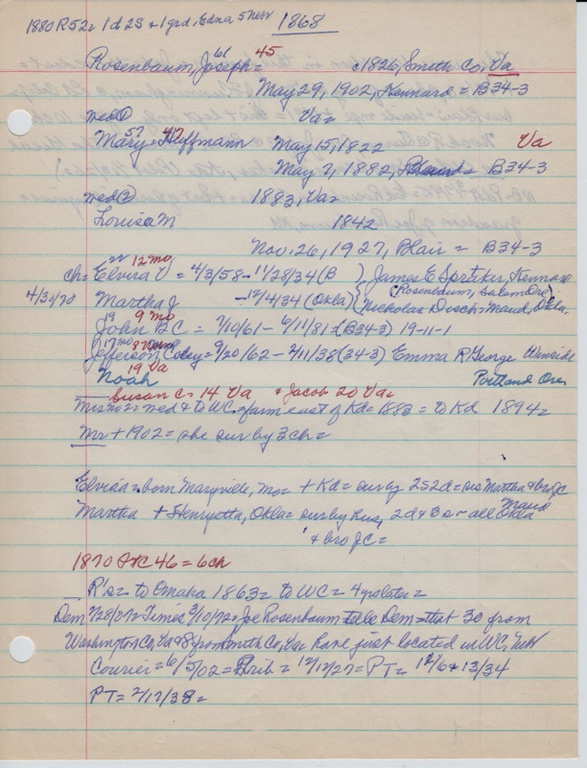 1880 R52= 1d 2S + 1 grd, Edna 5 Nebr 1868
61 45
Rosenbaum, Joseph = c1826, Smith Co, Va
May 29, 1902, Kennard = B34-3
wed ① Va=
57 47
Mary = Huffmann May 15, 1822 Va
May 7, 1882, = B34-3
wed ② 1883, Va=
Louisa M 1842
Nov. 26, 1927, Blair = B34-3
22 12 mo
ch= Elvira V = 4/3/58 - 11/28/34 (B ) James E Spriker, Kennard
(Rosenbaum, Salem Ore)
4/30/70 Martha J - 12/4/34 (Okla) Nicholas Disch = Maud, Okla.
19 9 mo
John B C = 7/10/61 - 6/11/81 = (B34-3) 19-11-1
17 mo 8
Jefferson Coley = 9/20/62 - 2/11/38 (34-3) Emma R George Winside
19 Va
Noah Portland Ore.
Susan C = 14 Va + Jacob 20 Va
Mrs no 2 = wed + to WC = farm east of Kd = 1883 = to Kd 1894 =
Mr + 1902 = she sur by 3 ch =
Elvira = born Maryville, Mo = + Kd = sur by 2s 2d = sis Martha + bro JC
Martha + Henryetta, Okla = sur by hus, 2d + 3s - all Maud Okla
+ bro JC =
1870 46 = 6ch
R's = to Omaha 1863 = to WC = 4 yrs later =
Dem 2/28/07 = Times 3/10/72 = Joe Rosenbaum tells Dem = that 30 from
Washington Co, Va + 8 from Smith Co, Va have just located in WC, Neb
Courier = 6/5/02 = Trib = 12/12/27 = PT = 12/6 + 13/34
PT = 2/17/38 =